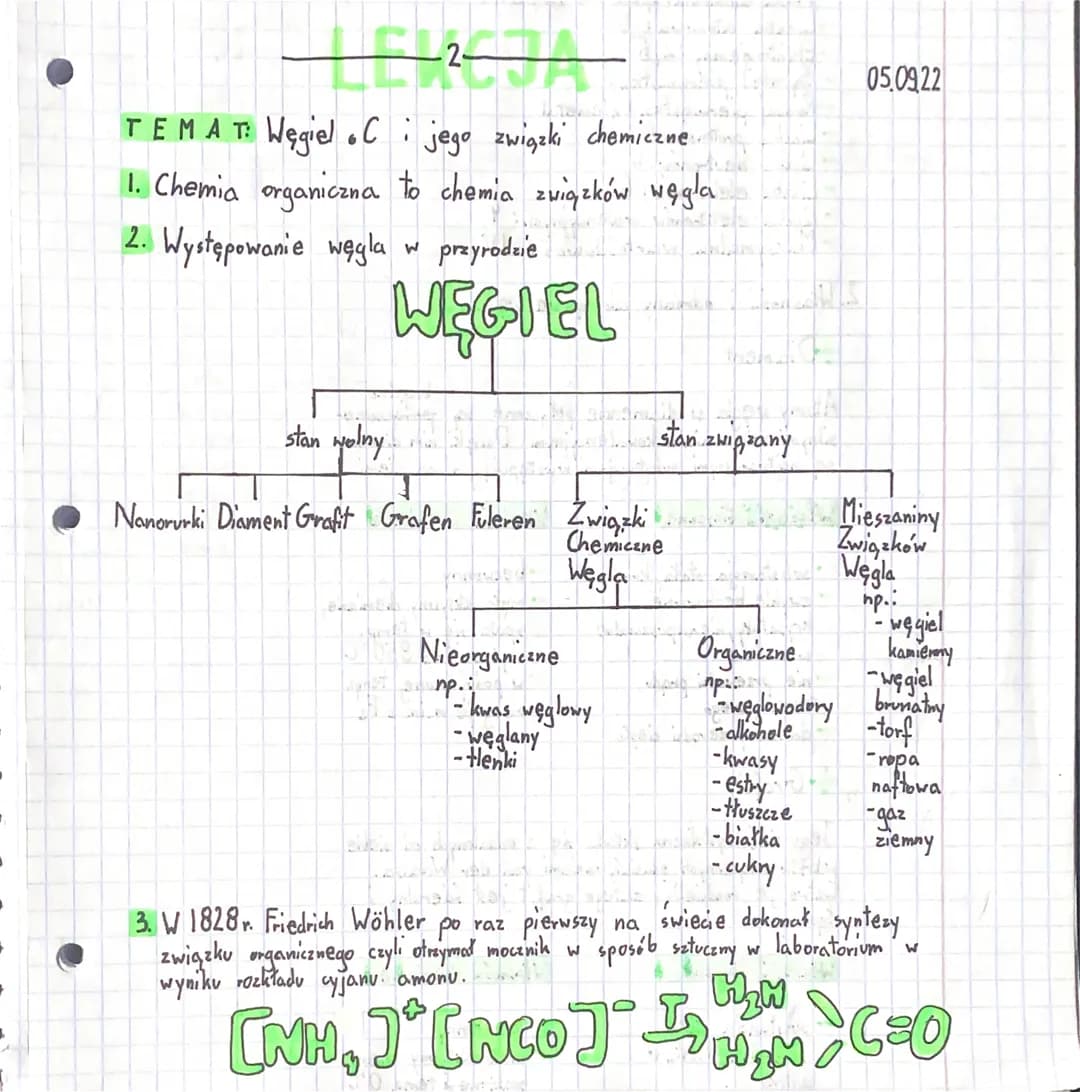 LEKCJA
2
05.09.22
TEMAT: Węgiel ₆C i jego związki chemiczne
1. Chemia organiczna to chemia związków węgla
2. Występowanie węgla w przyrodzie
WĘGIEL
stan wolny
stan związany
Nanorurki Diament Grafit Grafen Fuleren
Związki
Chemiczne
Węgla
Mieszaniny
Związków
Węgla
np.:
- węgiel
kamienny
- węgiel
brunatny
- torf
- ropa
naftowa
- gaz
ziemny
Nieorganiczne
np.:
- kwas węglowy
- węglany
- tlenki
Organiczne
np.:
- węglowodory
- alkohole
- kwasy
- estry
- tłuszcze
- białka
- cukry
3. W 1828r. Friedrich Wöhler po raz pierwszy na świecie dokonał syntezy
związku organicznego czyli otrzymał mocznik w sposób sztuczny w laboratorium w
wyniku rozkładu cyjanu amonu.
[NH₄]⁺[NCO]⁻ T→ H₂N H₂N >C=O